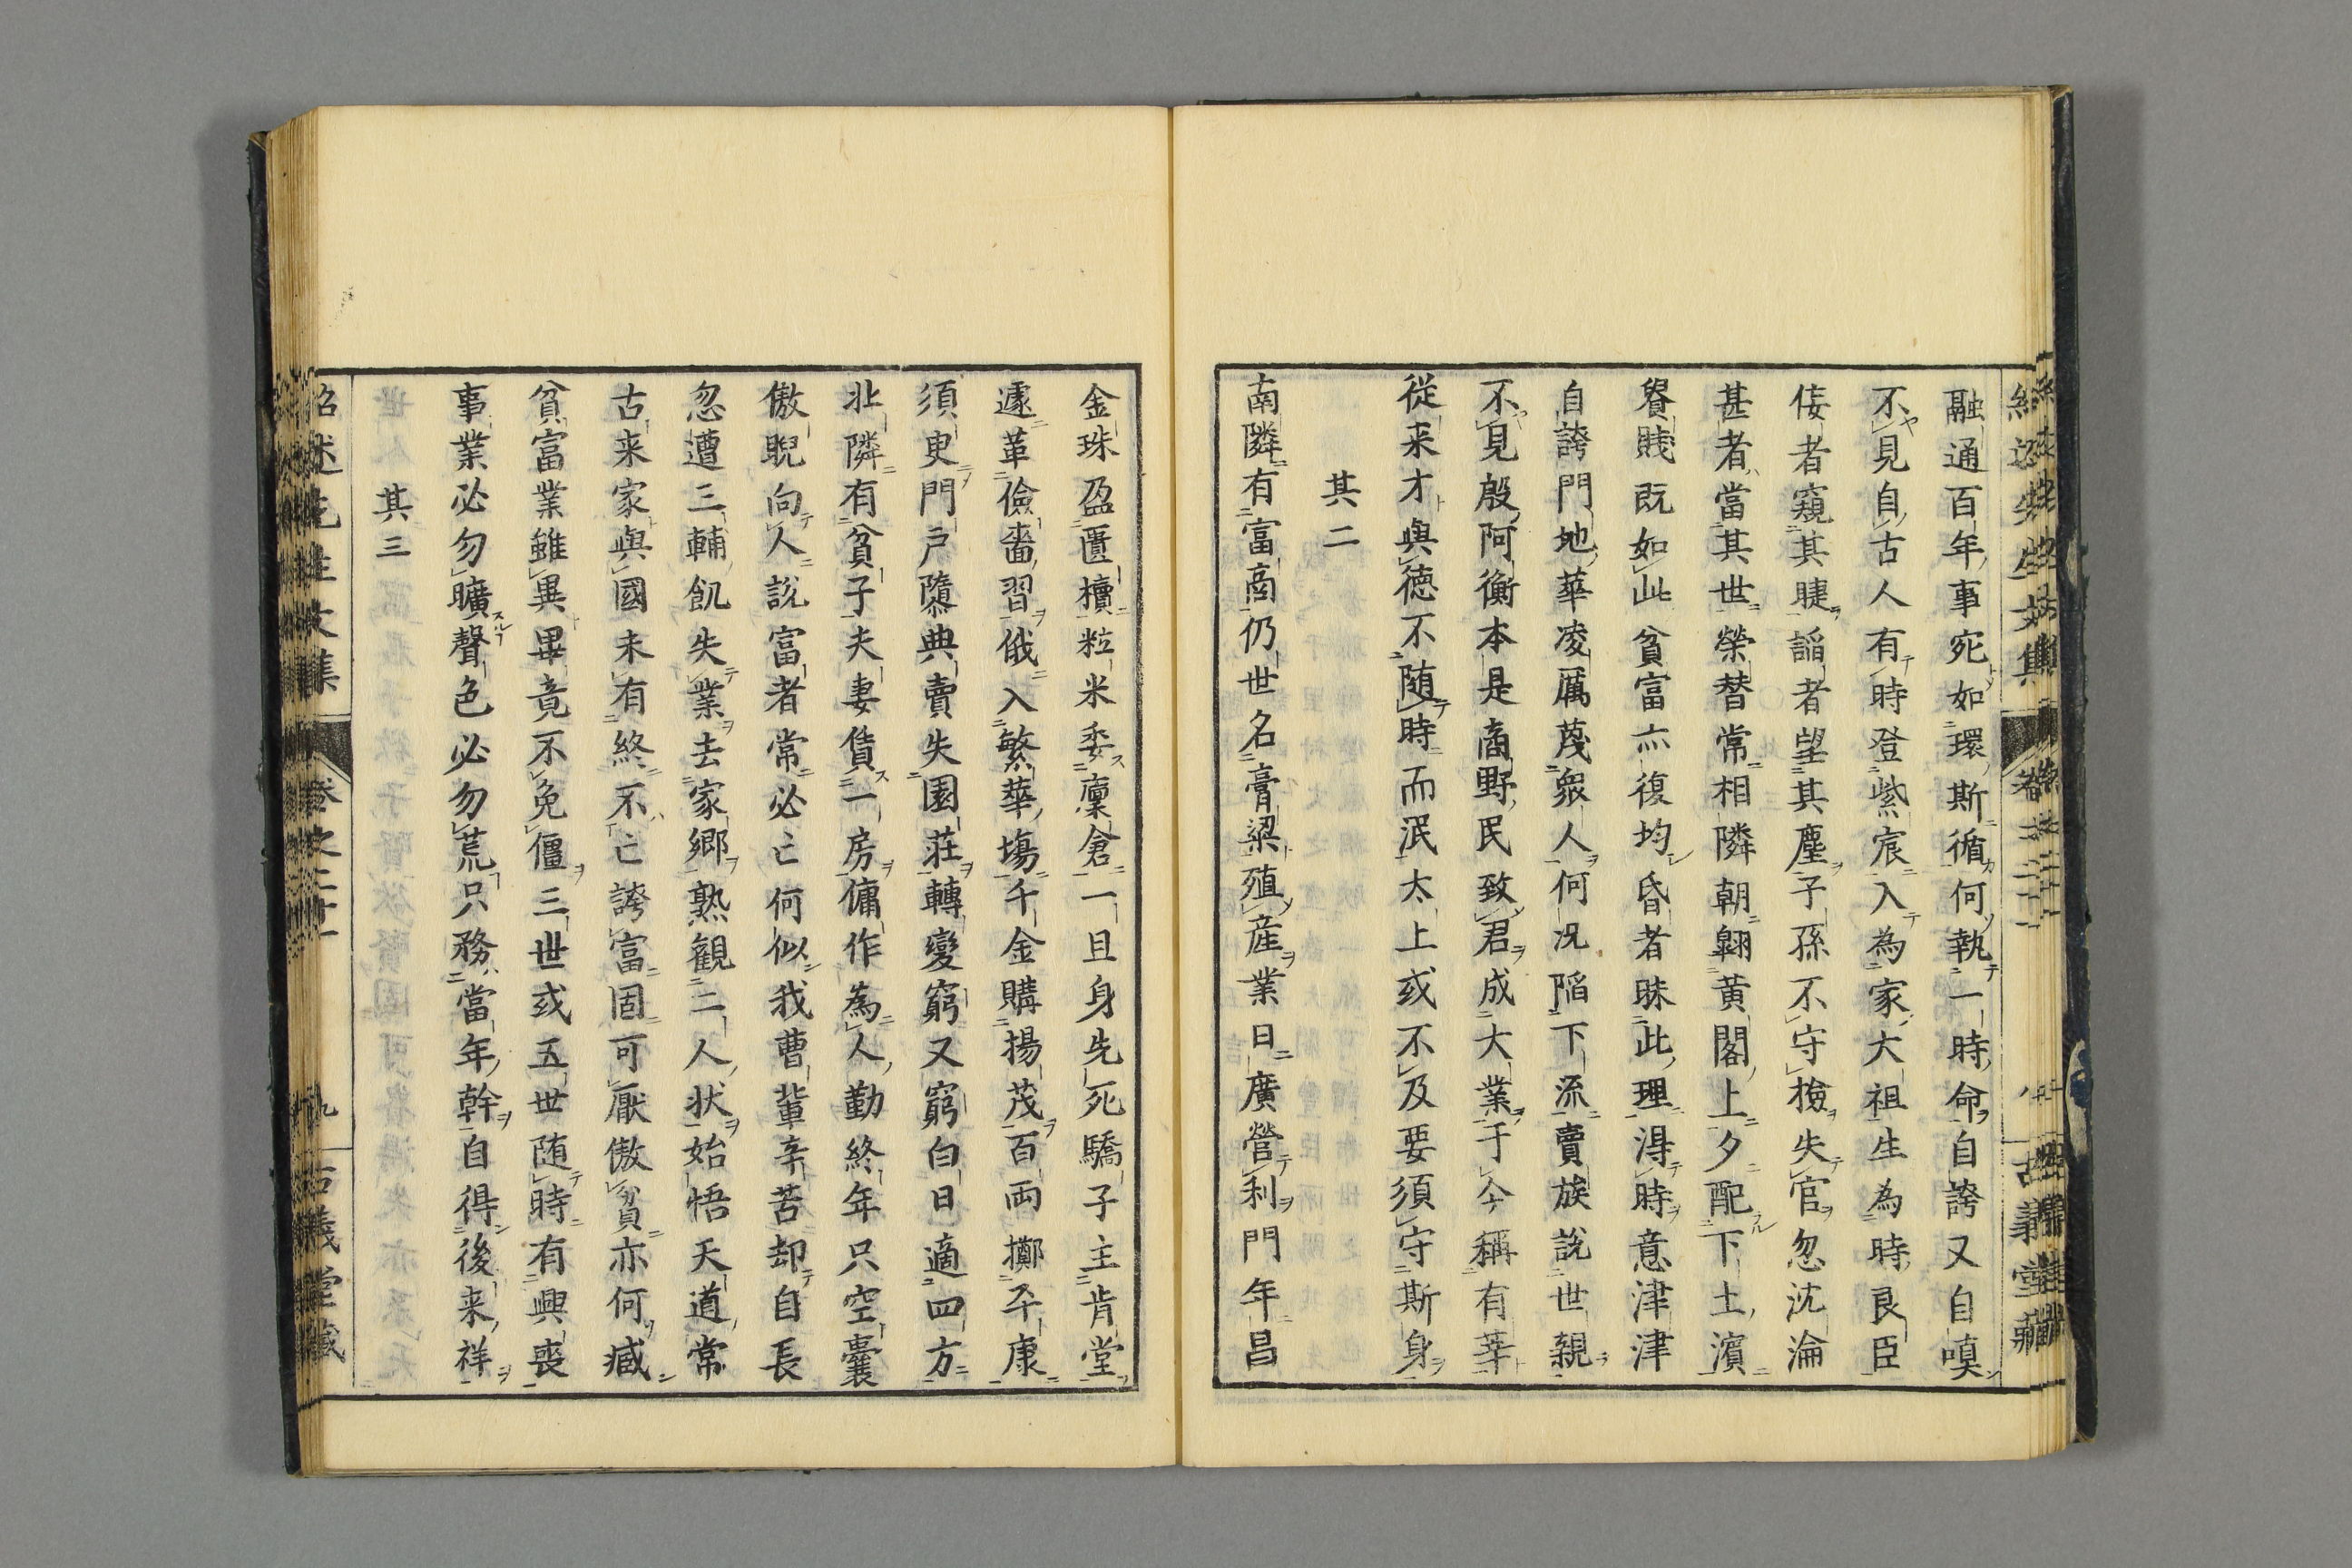 融通百年事宛如環斯循何執一時命自誇又自嗔
不見自古人有時登紫宸入為家大祖生為時良臣
倿者窺其睫諂者望其塵子孫不守撿失官忽沈淪
甚者當其世榮替常相隣朝翺黄閣上夕配下土濱
貴賤既如此貧富亦復均昏者昧此理淂時意津津
自誇門地華凌厲蔑衆人何况陷下流賣族説世親
不見殷阿衡本是商野民致君成大業于今稱有莘
従来才與徳不随時而泯太上或不及要須守斯身
其二
南隣有富商仍世名膏梁殖産業日廣營利門年昌
金珠盈匱櫝粒米委廩倉一旦身先死驕子主肯堂
遽革儉嗇習俄入繁華塲千金購揚茂百両擲平康
須臾門戸隳典賣失園荘轉變窮又窮白日適四方
北隣有貧子夫妻賃一房傭作為人勤終年只空囊
傲睨向人説富者常必亡何似我曹輩辛苦却自長
忽遭三輔飢失業去家郷熟観二人状始悟天道常
古来家與國未有終不亡誇富固可厭傲貧亦何臧
貧富業雖異畢竟不免僵三世或五世随時有興喪
事業必勿曠聲色必勿荒只務當年幹自得後来祥
其三
紹述先生文集 卷之二十一 九 古義堂藏